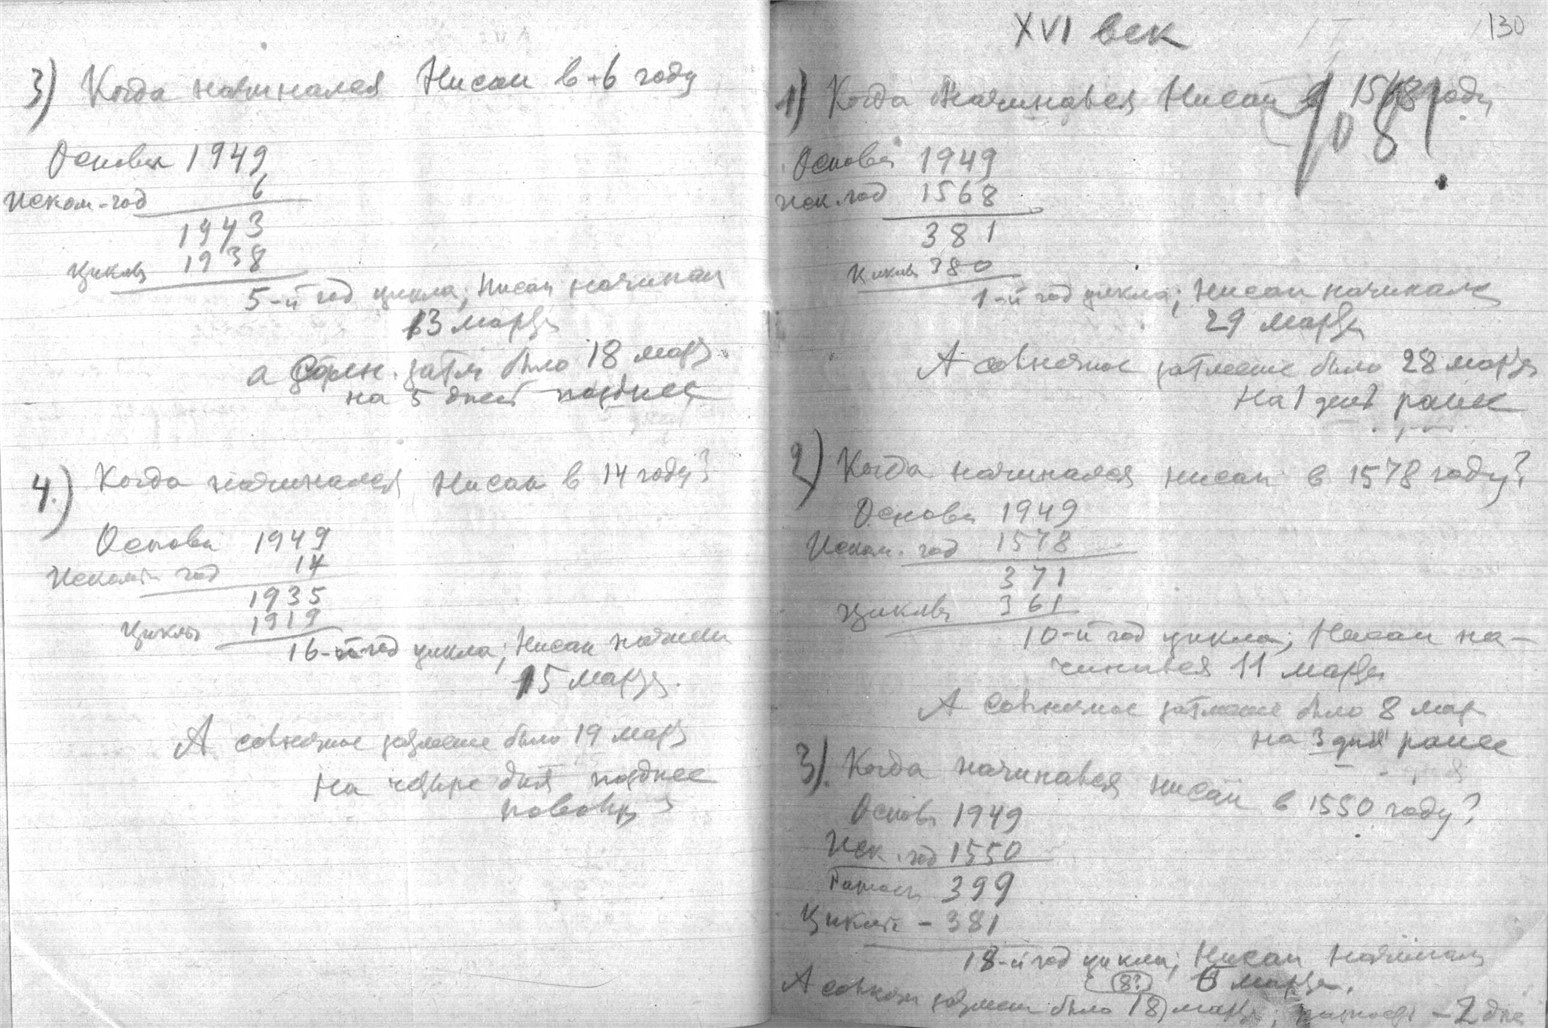 3) Когда начинался Нисан в +6 году
Основа 1949
Иском-год 6
1943
Циклы 1938
5-й год цикла; Нисан начинал
13 марта
а солн. затм было 18 март
на 5 дней позднее
4.) Когда начинался Нисан в 14 году?
Основа 1949
год 14
1935
Циклы 1919
16-й год цикла; Нисан
15 марта
А солнечное было 19 март
на дня позднее
XVI век 130
1) Когда начинался Нисан 1568 году
Основа 1949
Иск.год 1568
381
Циклы 380
1-й год цикла; Нисан начинался
29 марта
А солнечное затмение было 28 марта
На 1 ранее
2) Когда начинался нисан в 1578 году?
Основа 1949
Иском. год 1578
371
Циклы 361
10-й год цикла; Нисан на-
чинался 11 марта
А солнечное затмение было 8 мар
на 3 дня ранее
3). Когда начинался нисан в 1550 году?
Основа 1949
Иск. год 1550
399
- 381
18-й год цикла; Нисан
(8?) 6 марта.
А было 18 марта, - 2 дня